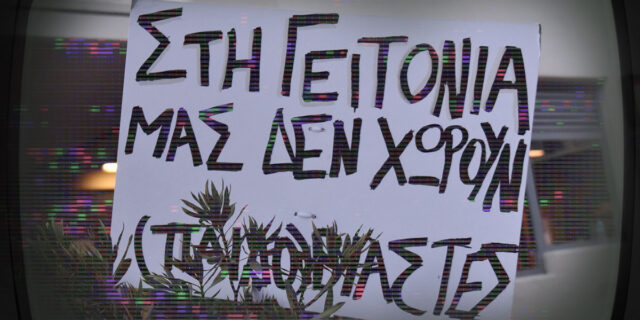 ΣΤΗ ΓΕΙΤΟΝΙΑ
ΜΑΣ ΔΕΝ ΧΩΡΟΥΝ